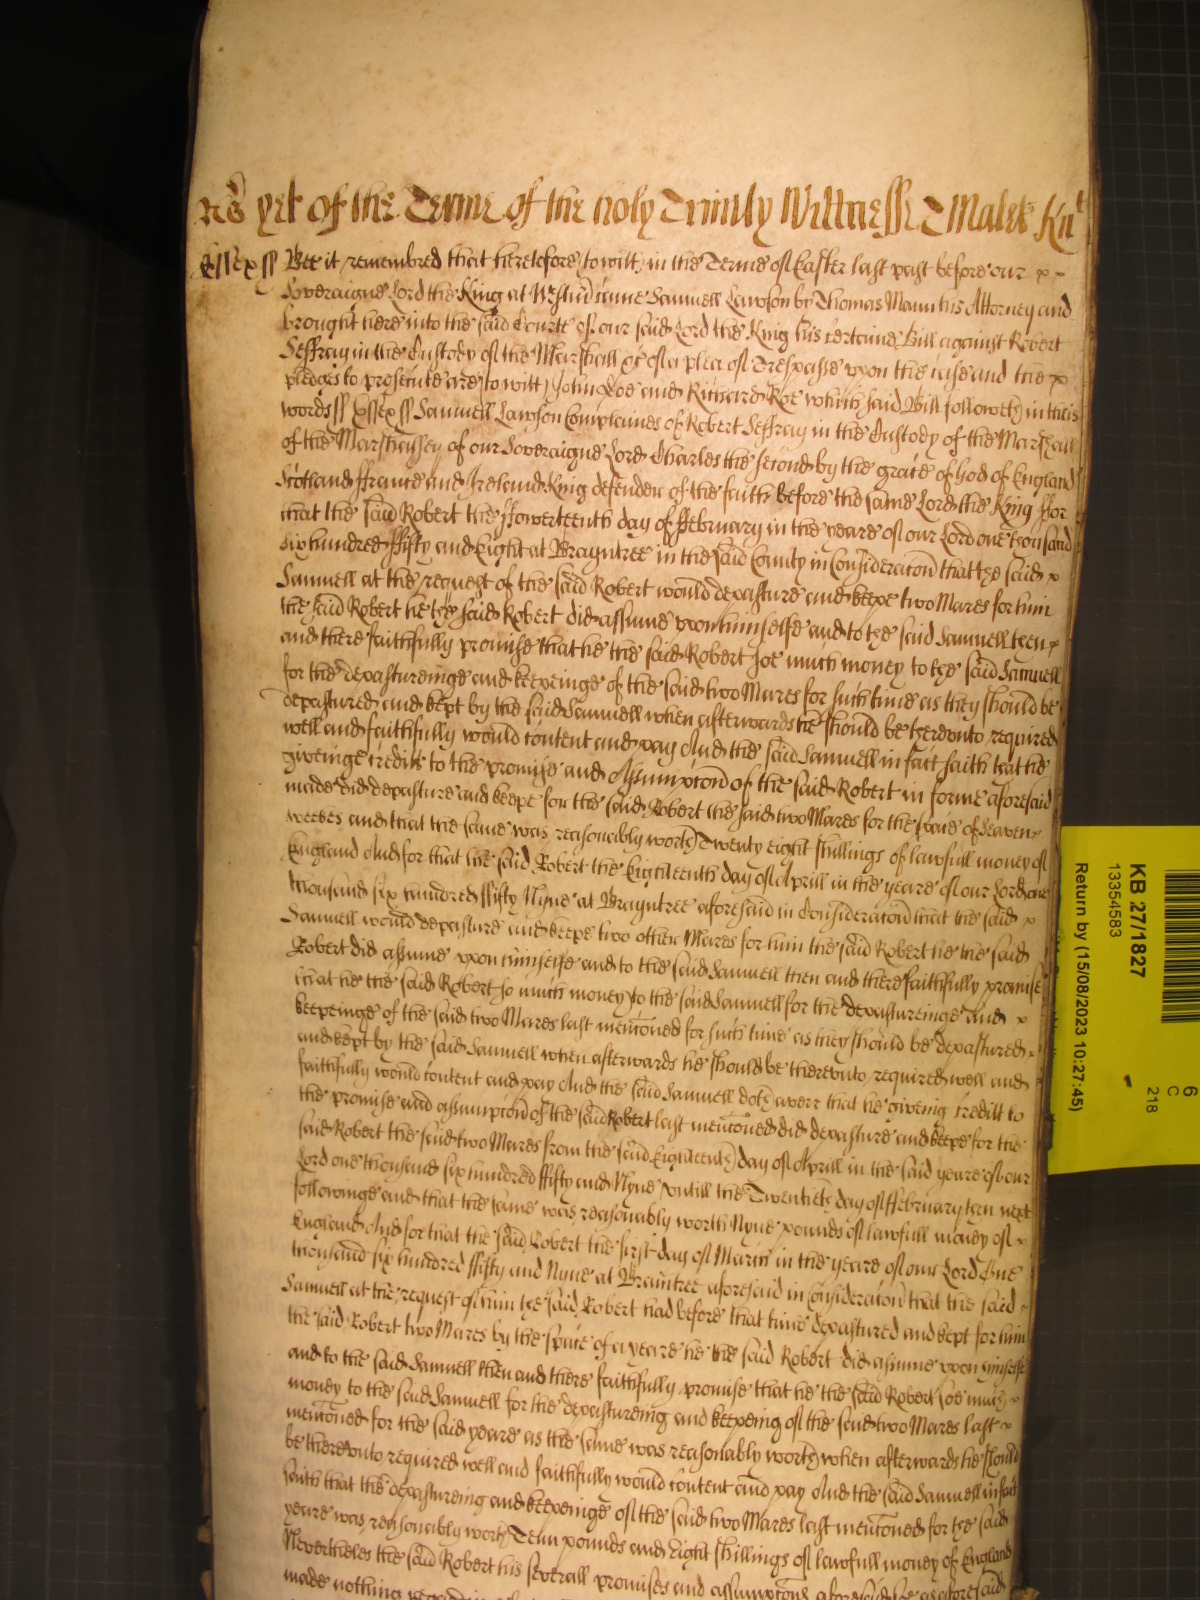 yet of the Terme of the holy Trinity Wittnesse T Malet Knt
Essex ss Bee it remembred that heretofore, to witt, in the Terme of Easter last past before our x x
Soveraigne Lord the King at Westm̃ came Samuell Lawson by Thomas Mann his Attorney and
brought here into the said Courte of our said Lord the King his certaine Bill against Robert
Jeffray in the Custody of the Marshall &c of a plea of Trespasse upon the case and the x
pledges to prosecute are, to witt, John Doe and Richard Roe which said Bill followeth in theis
words ss Essex ss Samuell Lawson Complaines of Robert Jeffray in the Custody of the Marshall
of the Marshalsey of our Soveraigne Lord Charles the second by the grace of God of England
Scotland ffrance and Ireland King defender of the faith before the same Lord the King ffor
that the said Robert the ffowerteenth day of ffebruary in the yeare of our Lord one thousand
six hundred ffifty and Eight at Braintree in the said County in Consideracoñ that the said x
Samuell at the request of the said Robert would depasture and keepe two Mares for him
the said Robert he the said Robert did assume upon himselfe and to the said Samuell then x
and there faithfully promise that he the said Robert soe much money to the said Samuell
for the depastureinge and keepeinge of the said two Mares for such time as they should be
depastured and kept by the said Samuell when afterwards he should be therevnto required
well and faithfully would content and pay And the said Samuell in fact saith that he
giveinge credit to the promise and Assumpcoñ of the said Robert in forme aforesaid
made did depasture and keepe for the said Robert the said two Mares for the space of Seaven
weekes and that the same was reasonably worth Twenty eight shillings of lawfull money of
England And for that the said Robert the Eighteenth day of Aprill in the yeare of our Lord one
thousand six hundred ffifty Nyne at Braintree aforesaid in Consideracoñ that the said x
Samuell would depasture and keepe two other Mares for him the said Robert he the said
Robert did assume upon himselfe and to the said Samuell then and there faithfully promise
that he the said Robert so much money to the said Samuell for the depastureinge and x
keepeinge of the said two Mares last mencõned for such time as they should be depastured
and kept by the said Samuell when afterwards he should be therevnto required well and
faithfully would content and pay And the said Samuell doth averr that he giving creditt to
the promise and assumpcoñ of the said Robert last mencõned did depasture and keepe for the
said Robert the said two Mares from the said Eighteenth day of Aprill in the said yeare of our
Lord one thousand six hundred ffifty and Nyne untill the Twentieth day of ffebruary then next
followinge and that the same was reasonably worth Nyne pounds of lawfull money of x
England And for that the said Robert the first day of March in the yeare of our Lord One
thousand six hundred ffifty and Nyne at Braintree aforesaid in consideracoñ that the said
Samuell at the request of him the said Robert had before that time depastured and kept for him
the said Robert two Mares by the space of a yeare he the said Robert did assume upon himselfe
and to the said Samuell then and there faithfully promise that he the said Robert soe much x
money to the said Samuell for the depastureing and keepeing of the said two Mares last x
mencõned for the said yeare as the same was reasonably worth when afterwards he should
be therevnto required well and faithfully would content and pay And the said Samuell in fact
saith that the depastureing and keepeinge of the said two Mares last mencõned for the said
yeare was reasonably worth Tenn pounds and Eight shillings of lawfull money of England
Nevertheles the said Robert his severall promises and assumpcons aforesaid soe as aforesaid
made nothing
KB 27/1827
13354583
Return by (15/08/2023 10:27:45)
6
C
218